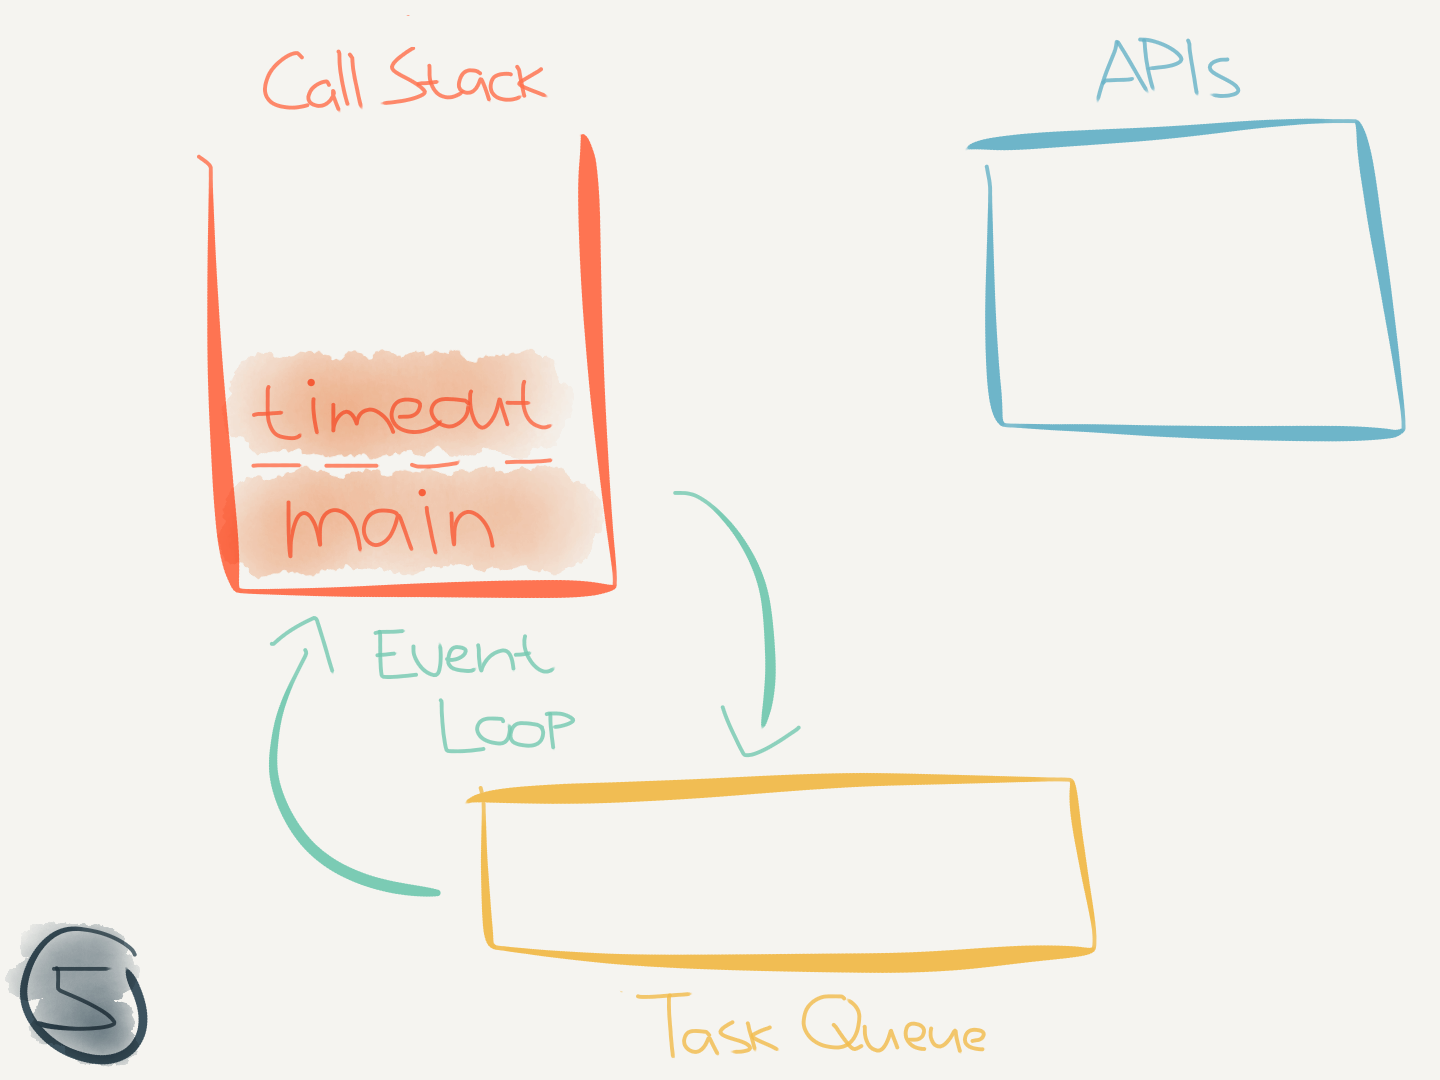 Call Stack
APIs
timeout
main
Event
Loop
Task Queue
5